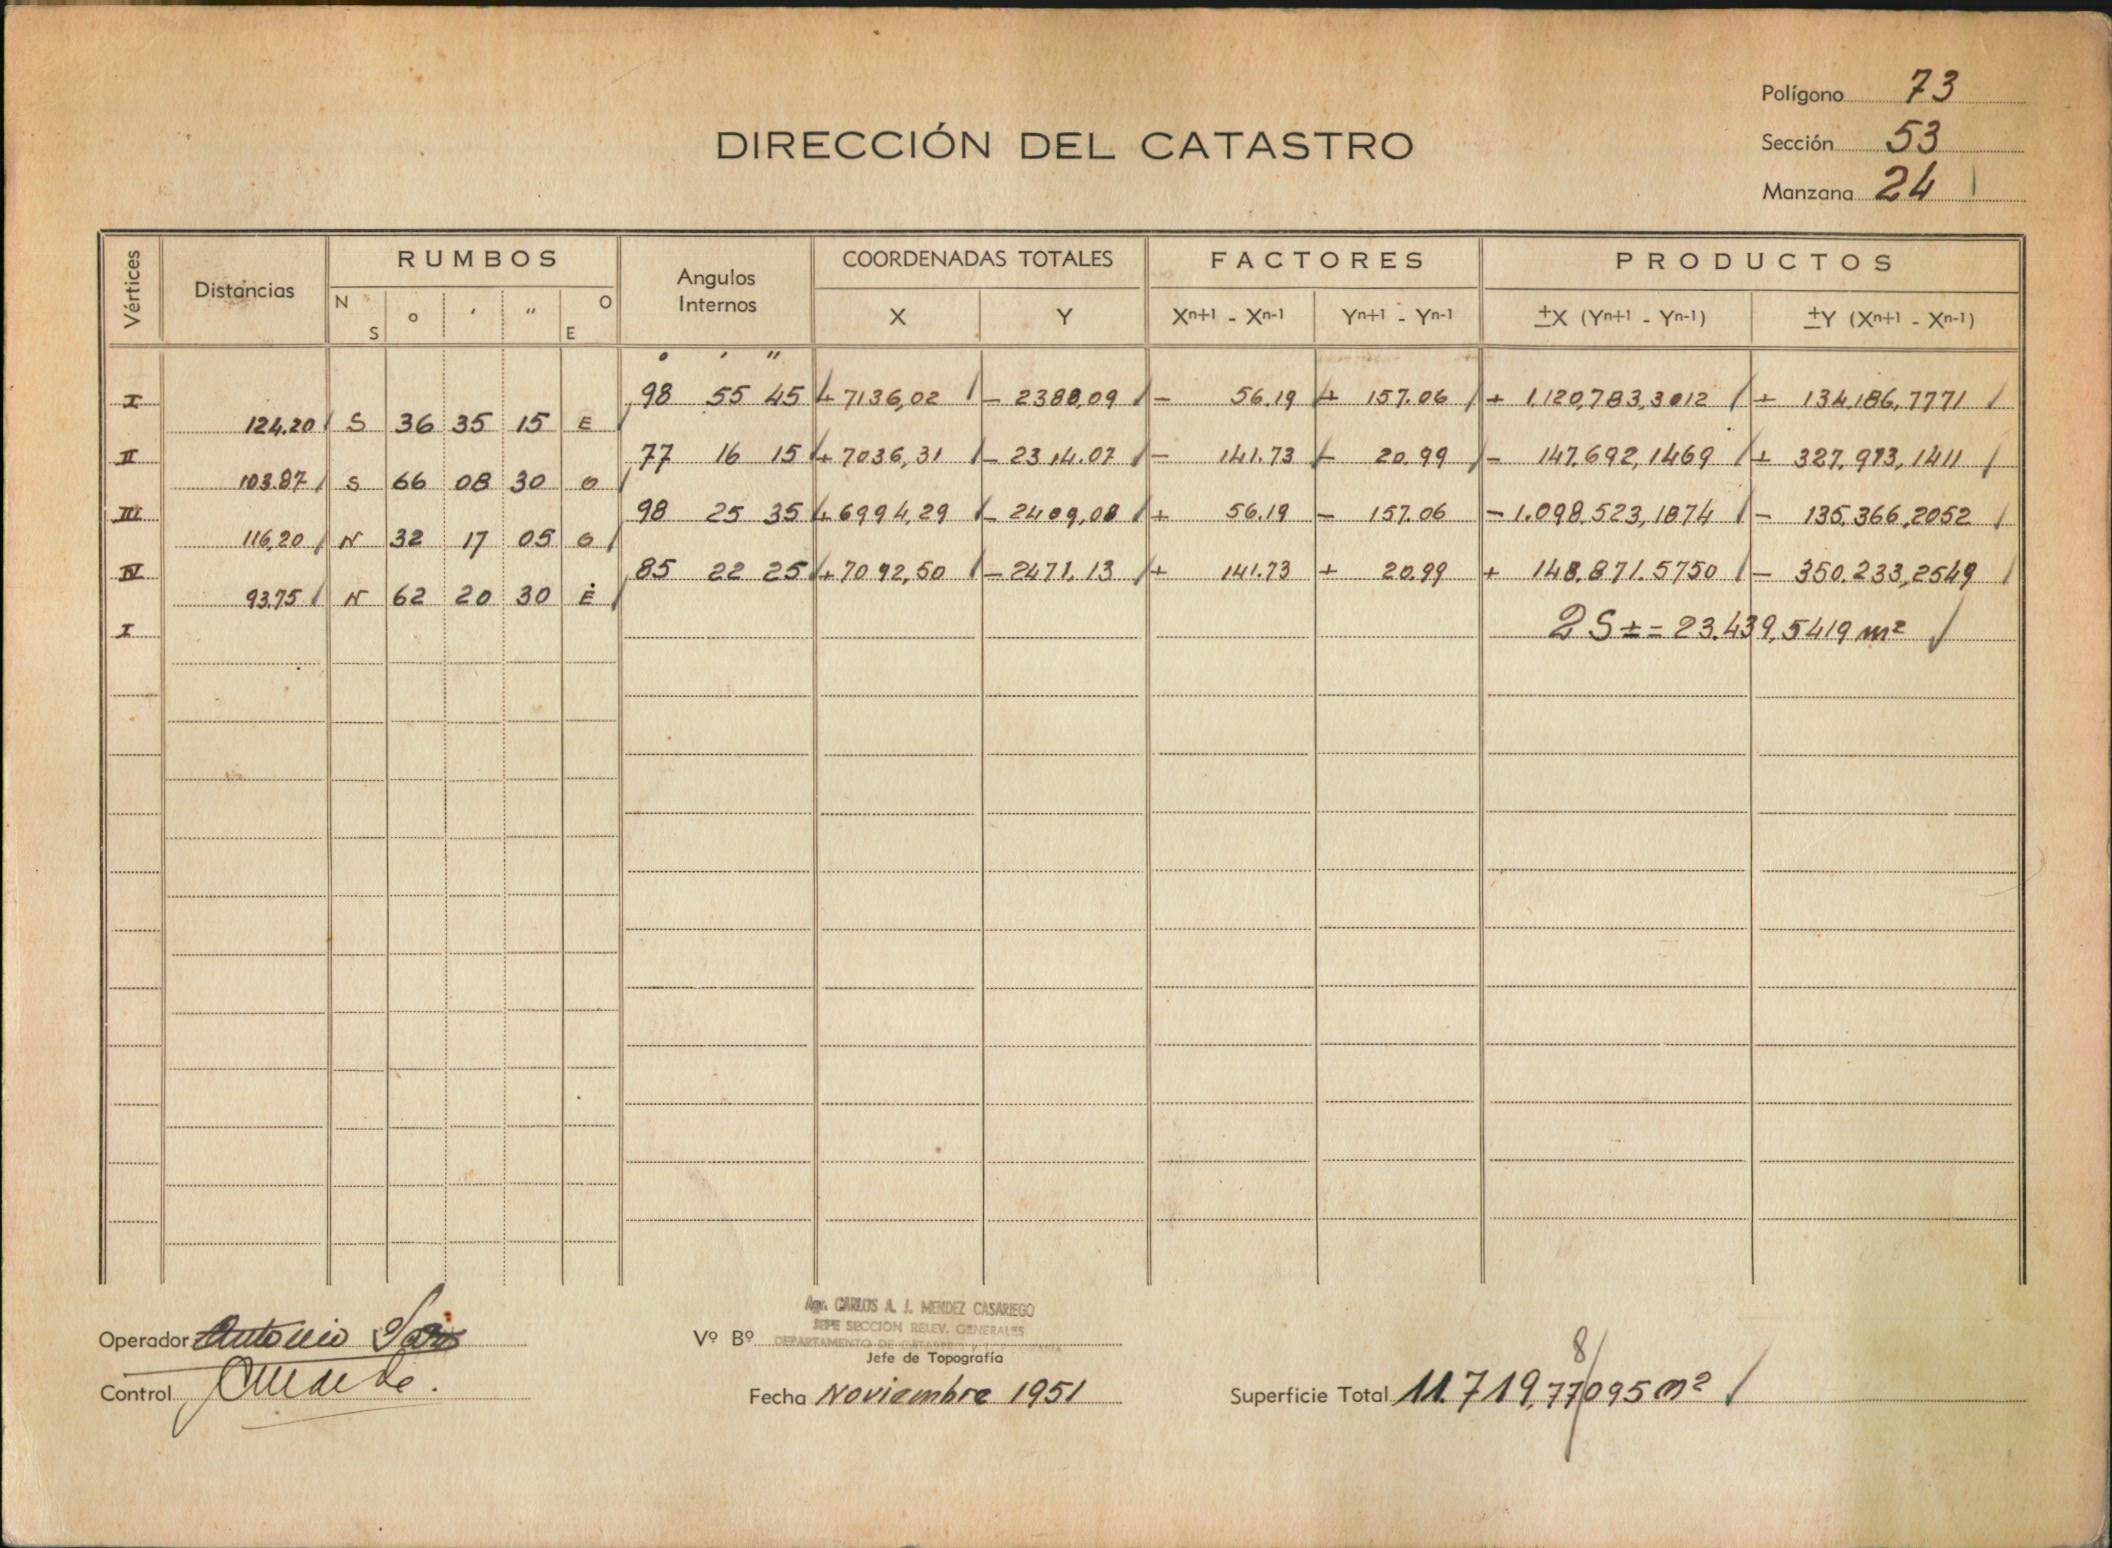 Polígono 73
DIRECCIÓN DEL CATASTRO
Sección 53
Manzana 24
Vértices Distancias RUMBOS Angulos Internos COORDENADAS TOTALES FACTORES PRODUCTOS
N S ° ' " O E X Y Xn+1 - Xn-1 Yn+1 - Yn-1 ±X (Yn+1 - Yn-1) ±Y (Xn+1 - Xn-1)
° ' "
I 98 55 45 + 7136,02 - 2388,09 - 56.19 + 157.06 + 1.120,783,3012 + 134,186,7771
124.20 S 36 35 15 E
II 77 16 15 + 7036,31 - 2314.07 - 141.73 - 20.99 - 147.692,1469 + 327,973,1411
103.87 S 66 08 30 O
III 98 25 35 + 6994,29 - 2409,08 + 56.19 - 157.06 - 1.098.523,1874 - 135,366,2052
116,20 N 32 17 05 O
IV 85 22 25 + 7092,50 - 2471,13 + 141.73 + 20.99 + 148,871.5750 - 350.233,2549
93.75 N 62 20 30 E
I 2S ± = 23.439,5419 m²
Agr. CARLOS A. J. MENDEZ CASARIEGO
JEFE SECCION RELEV. GENERALES
DEPARTAMENTO DE
Operador Antonio
Vº Bº
Jefe de Topografía
8
Control
Fecha Noviembre 1951
Superficie Total 11.719,77095 m²